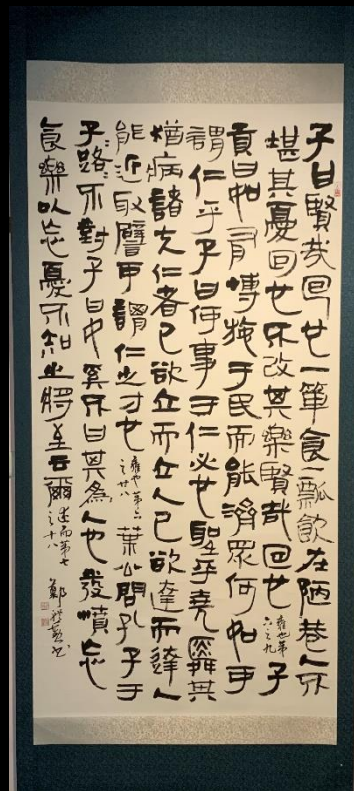 子曰賢哉回也一簞食一瓢飲在陋巷人不
堪其憂回也不改其樂賢哉回也雍也第六之九子
貢曰如有博施于民而能濟眾何如可
謂仁乎子曰何事于仁必也聖乎堯舜其
猶病諸夫仁者己欲立而立人己欲達而達人
能近取譬可謂仁之方也雍也第六之廿八葉公問孔子于
子路不對子曰女奚不曰其為人也發憤忘
食樂以忘憂不知之將至云爾述而第七之十八鄭書